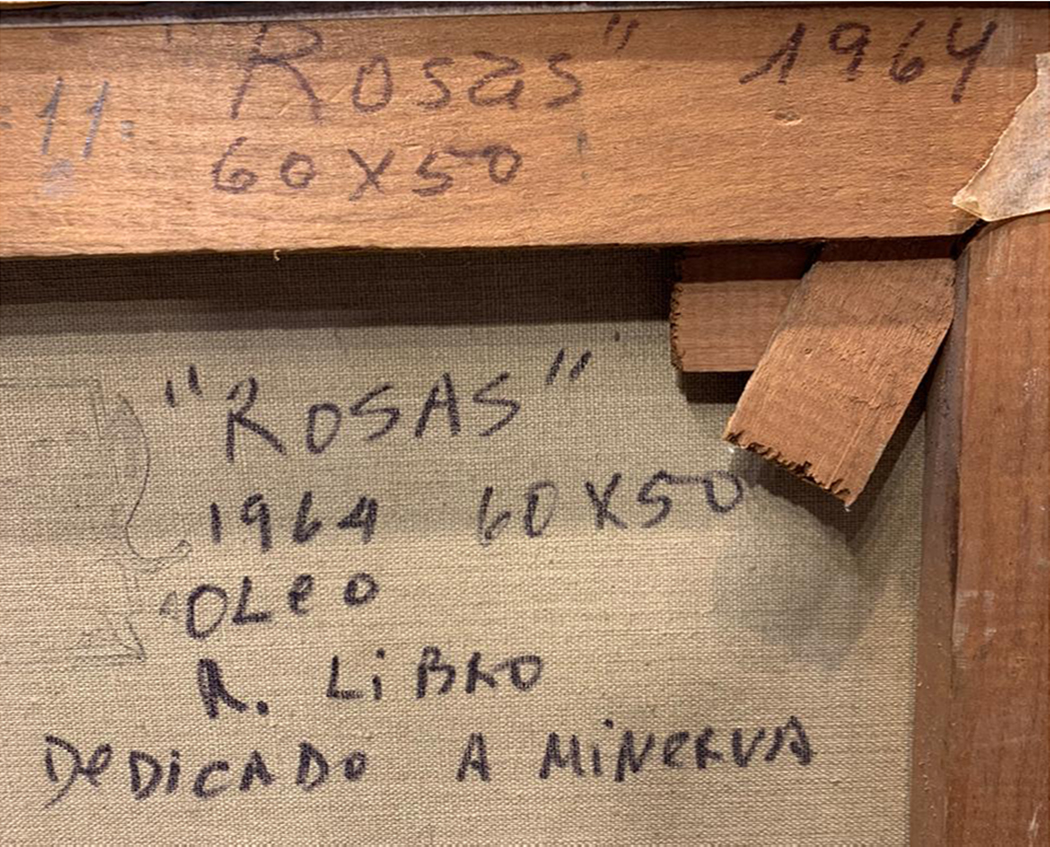 "Rosas" 1964
=11=
60X50
"ROSAS"
1964 60X50
OLeO
R. LiBRO
DeDiCADO A MiNeRVA